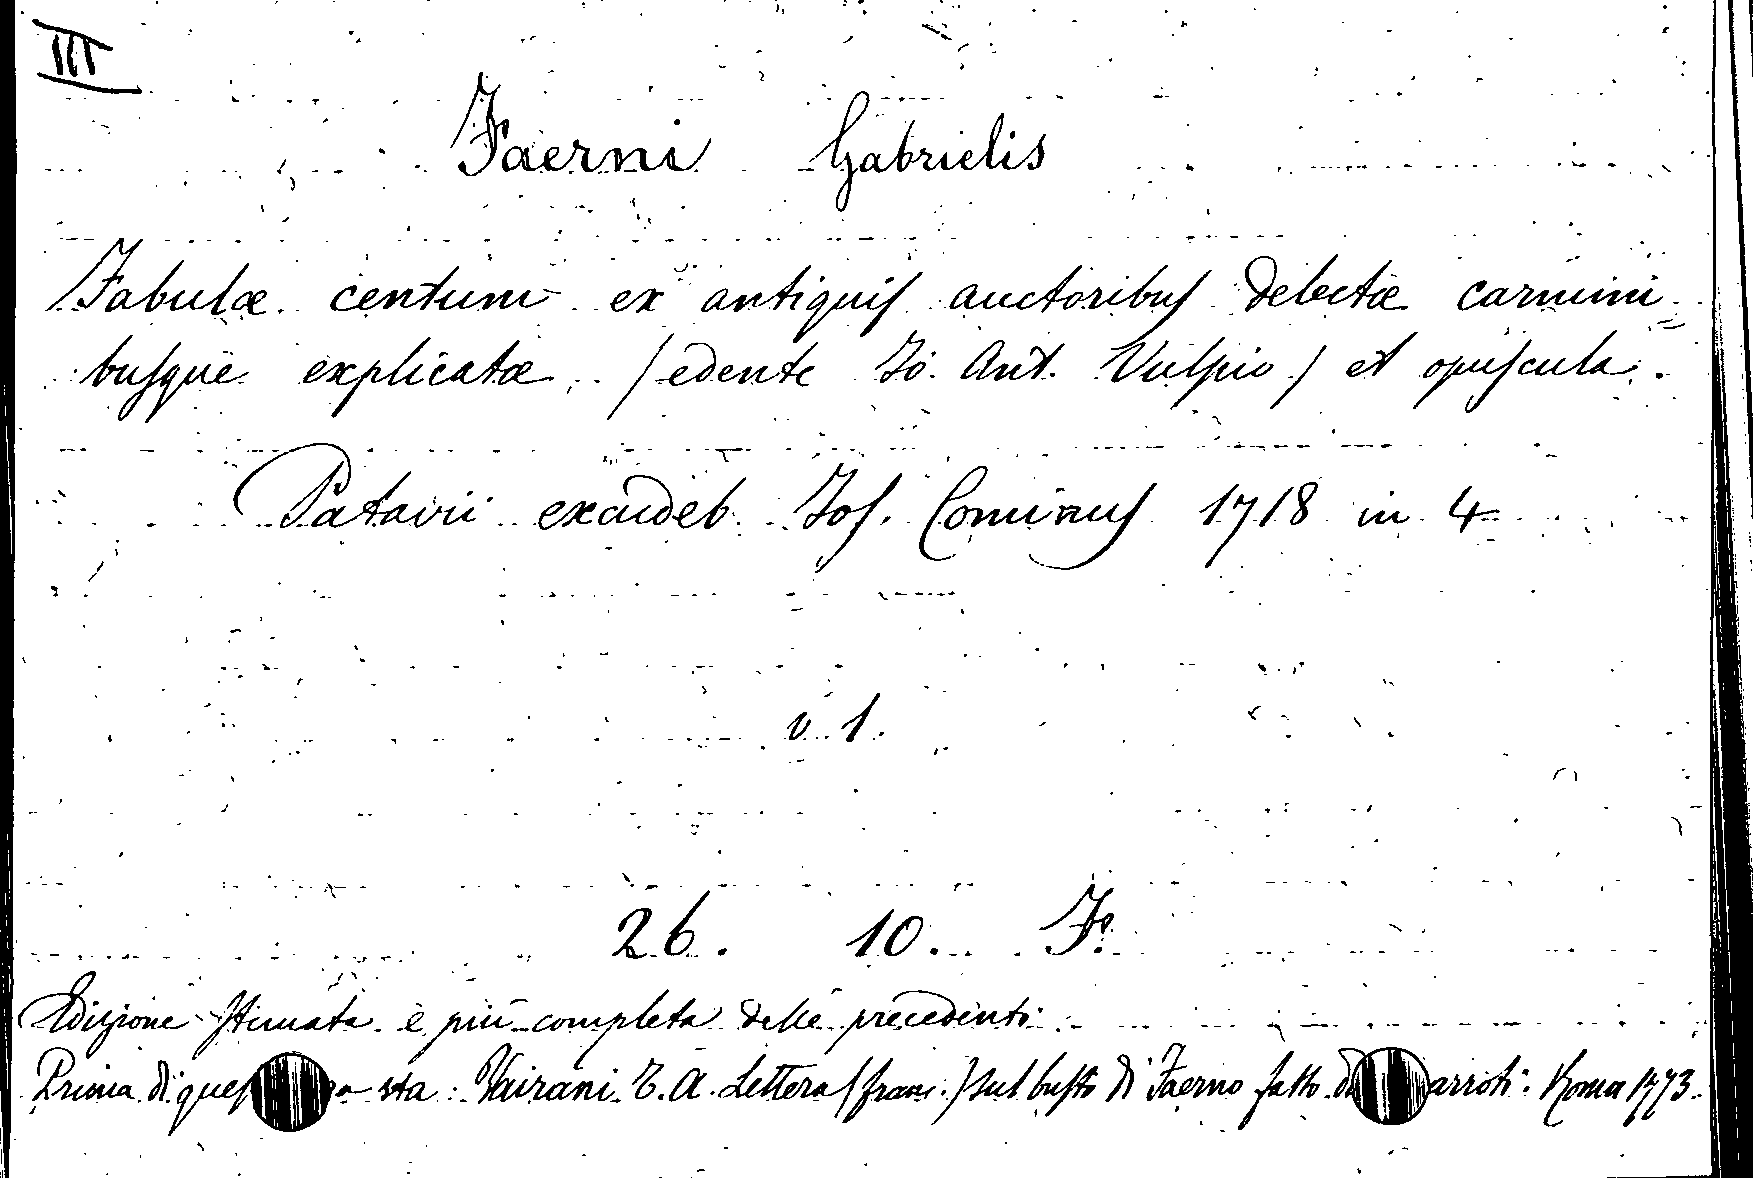 III
Faerni Gabrielis
Fabulæ centum ex antiquis auctoribus delectæ carmini=
busque explicatæ. (edente Jo. Ant. Vulpio) et opuscula.
Patavii excudeb. Jos. Cominus 1718 in 4
v. 1.
26. 10. F.
Edizione stimata e più completa delle precedenti.
Prima di sta: Vairani T. A. Lettera (franc.) sul busto di Faerno fatto Roma 1773.